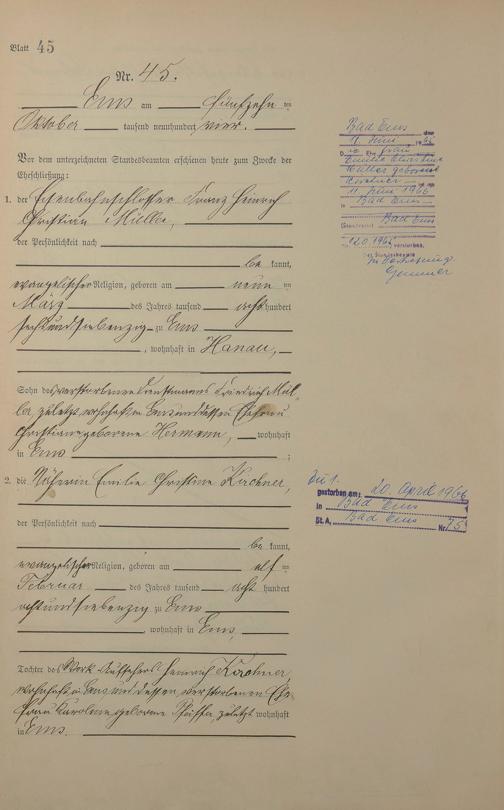 Blatt 45
Nr. 45.
Ems am fünfzehn ten
Oktober tausend neunhundert vier.
Vor dem unterzeichneten Standesbeamten erschienen heute zum Zwecke der
Eheschließung:
1. der Eisenbahnschlosser Franz Heinrich
Christian Müller,
der Persönlichkeit nach
be kannt,
evangelischer Religion, geboren am neun ten
März des Jahres tausend acht hundert
sechsundsiebenzig zu Ems
, wohnhaft in Hanau,
Sohn des verstorbenen Dienstmanns Friedrich Mül-
ler, zuletzt wohnhaft in Ems und dessen Ehefrau
Christiane geborene Hermann, wohnhaft
in Ems ;
2. die Näherin Emilie Christine Kirchner,
der Persönlichkeit nach
be kannt,
evangelischer Religion, geboren am elf ten
Februar des Jahres tausend acht hundert
achtundsiebenzig zu Ems
wohnhaft in Ems,
Tochter des Werk-Aufsehers Heinrich Kirchner,
wohnhaft in Ems und dessen verstorbenen Ehe-
frau Karoline geborene Pfeiffer, zuletzt wohnhaft
in Ems.
Bad Ems, den
11. Juni 1965
Die Ehefrau
Emilie Christine
Müller geborene
Kirchner
11. Juni 1965
in Bad Ems
Bad Ems
verstorben.
Der Standesbeamte
In Vertretung
Zu 1.
gestorben am: 20. April 1966
in Bad Ems
St. A. Bad Ems Nr. 75